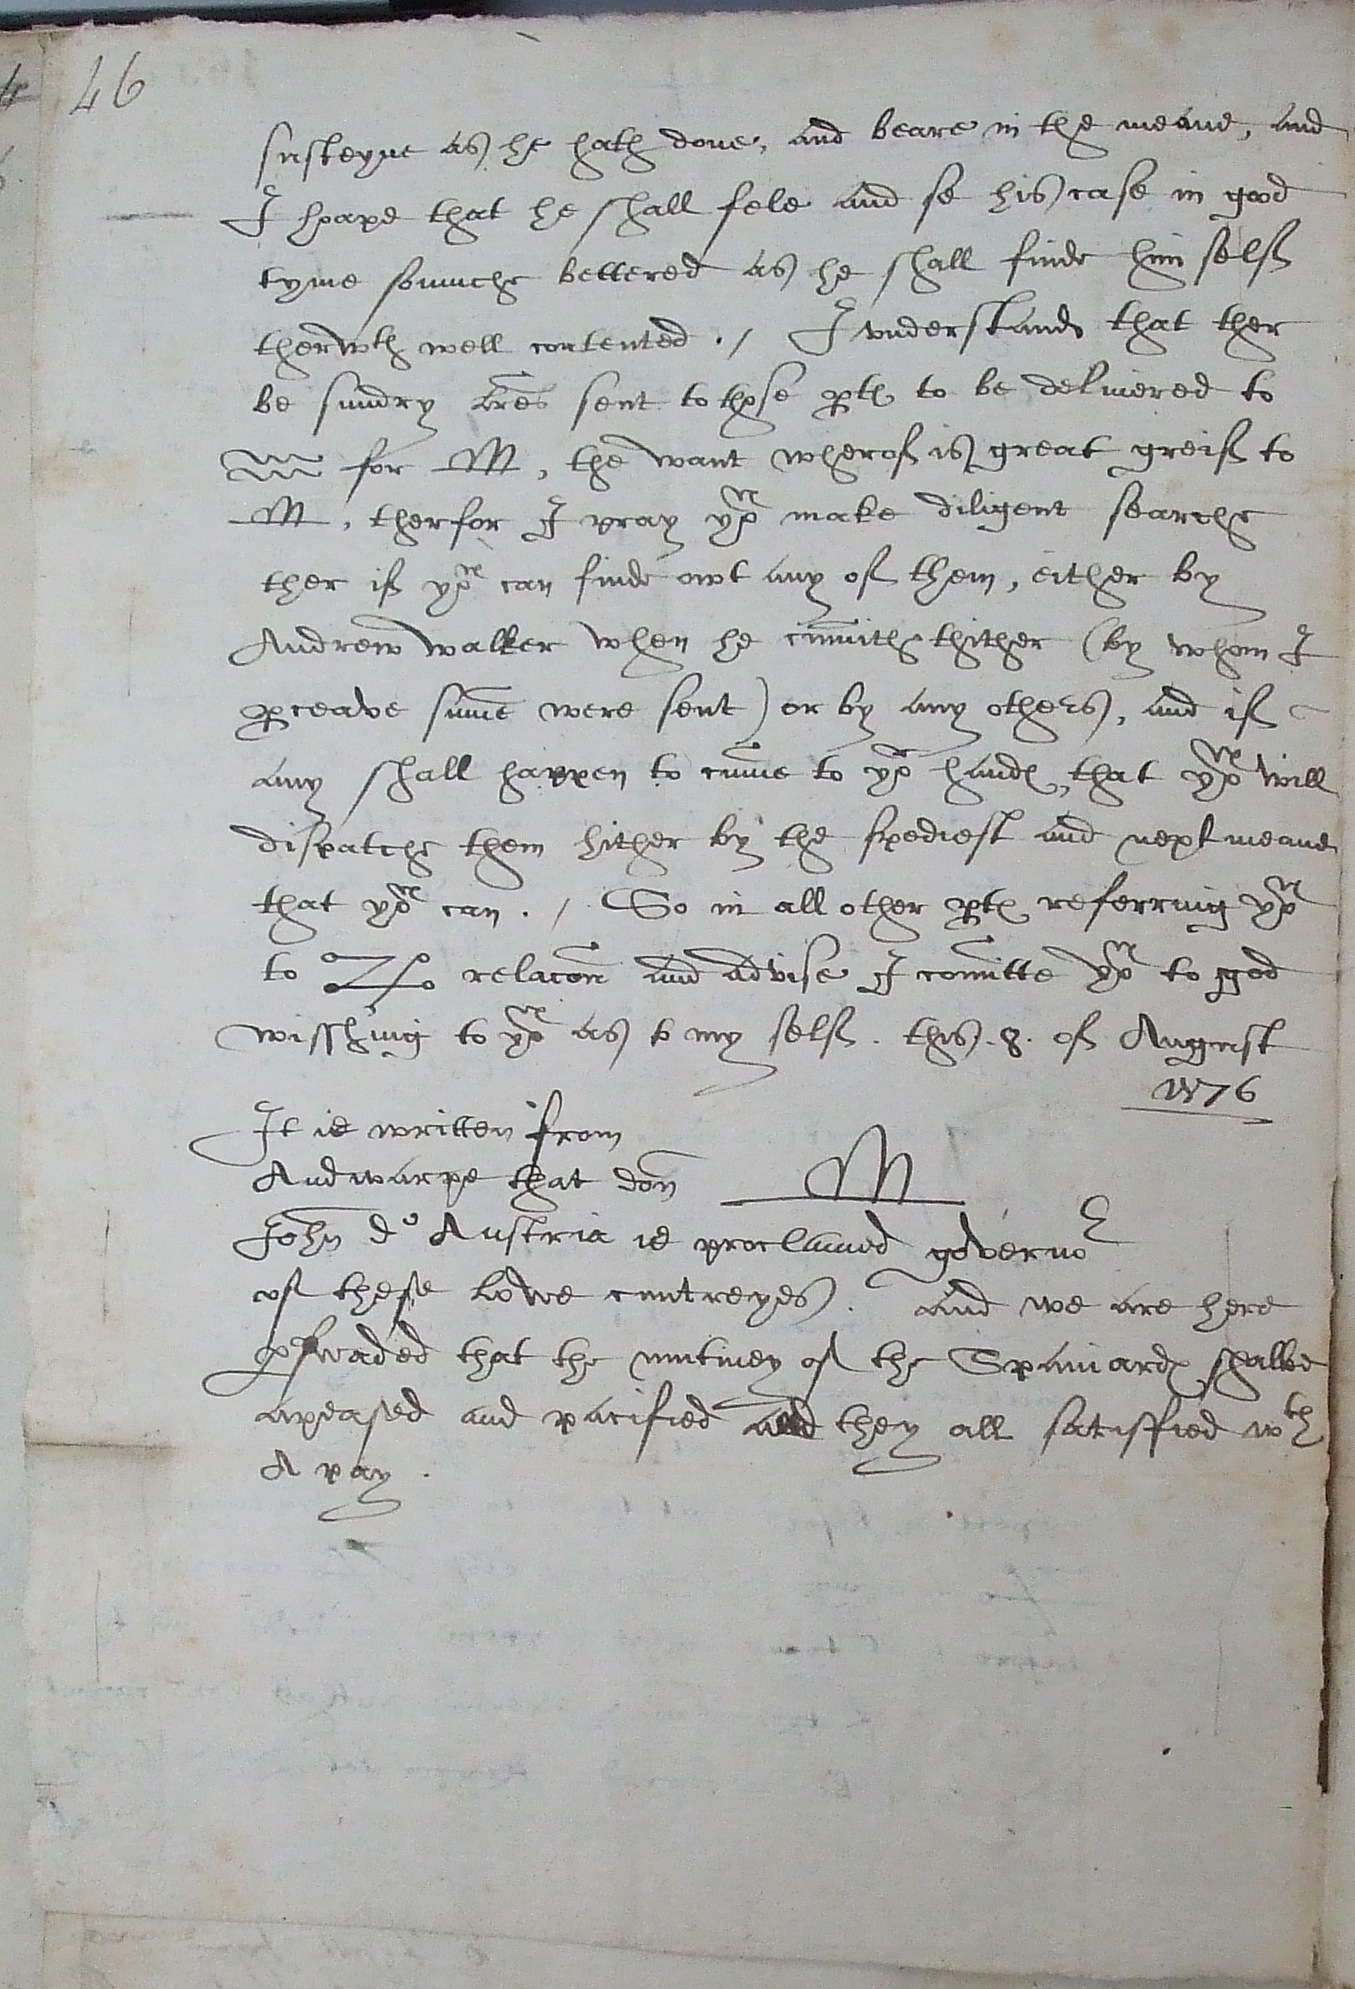 46
susteyne as he hath done, and beare in the meane, and
I hope that he shall fele and se his case in good
tyme somuche bettered as he shall finde him self
therwth well contented ./ I understand that ther
be sundry lres sent to those ptes to be delivered to
for M, the want wherof is great greif to
M, therfor I pray you make diligent searche
ther if you can finde owt any of them, either by
Andrew walker when he cumith thither (by whom I
pceave sume were sent) or by any others, and if
any shall happen to cume to yor handes, that you will
dispatche them hither by the spediest and next meane
that you can ./ So in all other ptes referring you
to relacon and advise I comitte you to god
wisshing to you as to my self . this .8. of August
1576
It is written from
Andwarpe that don M
John de Austria is proclaimed governor
of these lowe cuntreyes . And we are here
pswaded that the mutiney of the Spaniardes shalbe
apeased and pacified and they all satisfied wth
A pay .